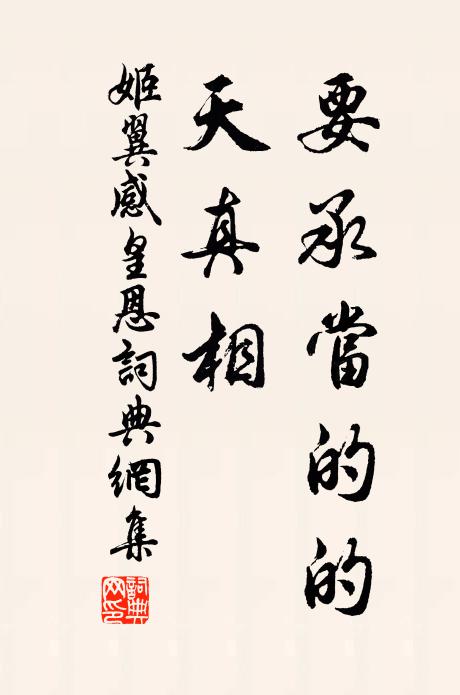 要承當的的
天真相
姬翼感皇恩詞典網集
詞典網印